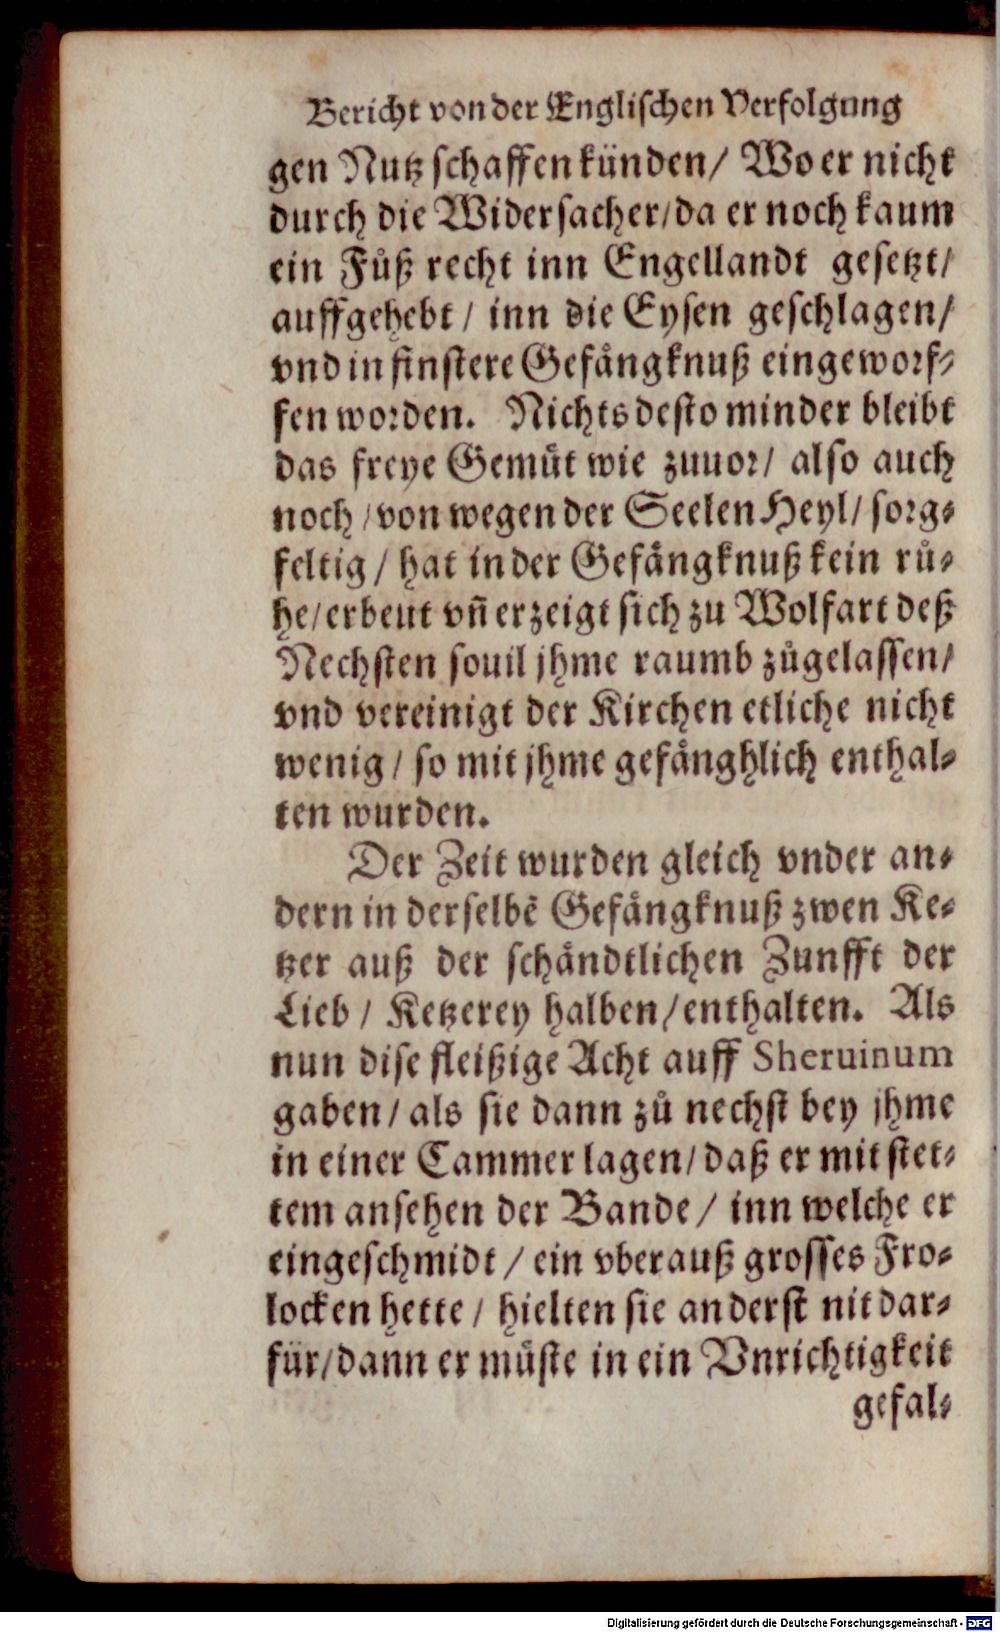 Bericht von der Englischen Verfolgung
gen Nutz schaffen künden/ Wo er nicht
durch die Widersacher/da er noch kaum
ein Fůß recht inn Engellandt gesetzt/
auffgehebt / inn die Eysen geschlagen/
vnd in finstere Gefångknuß eingeworf-
fen worden. Nichts desto minder bleibt
das freye Gemůt wie zuuor/ also auch
noch / von wegen der Seelen Heyl/ sorg-
feltig / hat in der Gefångknuß kein rů-
he/erbeut vñ erzeigt sich zu Wolfart deß
Nechsten souil jhme raumb zůgelassen/
vnd vereinigt der Kirchen etliche nicht
wenig / so mit jhme gefånghlich enthal-
ten wurden.
Der Zeit wurden gleich vnder an-
dern in derselbē Gefångknuß zwen Ke-
tzer auß der schåndtlichen Zunfft der
Lieb / Ketzerey halben/enthalten. Als
nun dise fleißige Acht auff Sheruinum
gaben/ als sie dann zů nechst bey jhme
in einer Cammer lagen/ daß er mit stet-
tem ansehen der Bande / inn welche er
eingeschmidt / ein vberauß grosses Fro-
locken hette / hielten sie anderst nit dar-
für/dann er můste in ein Vnrichtigkeit
gefal-
Digitalisierung gefördert durch die Deutsche Forschungsgemeinschaft - DFG